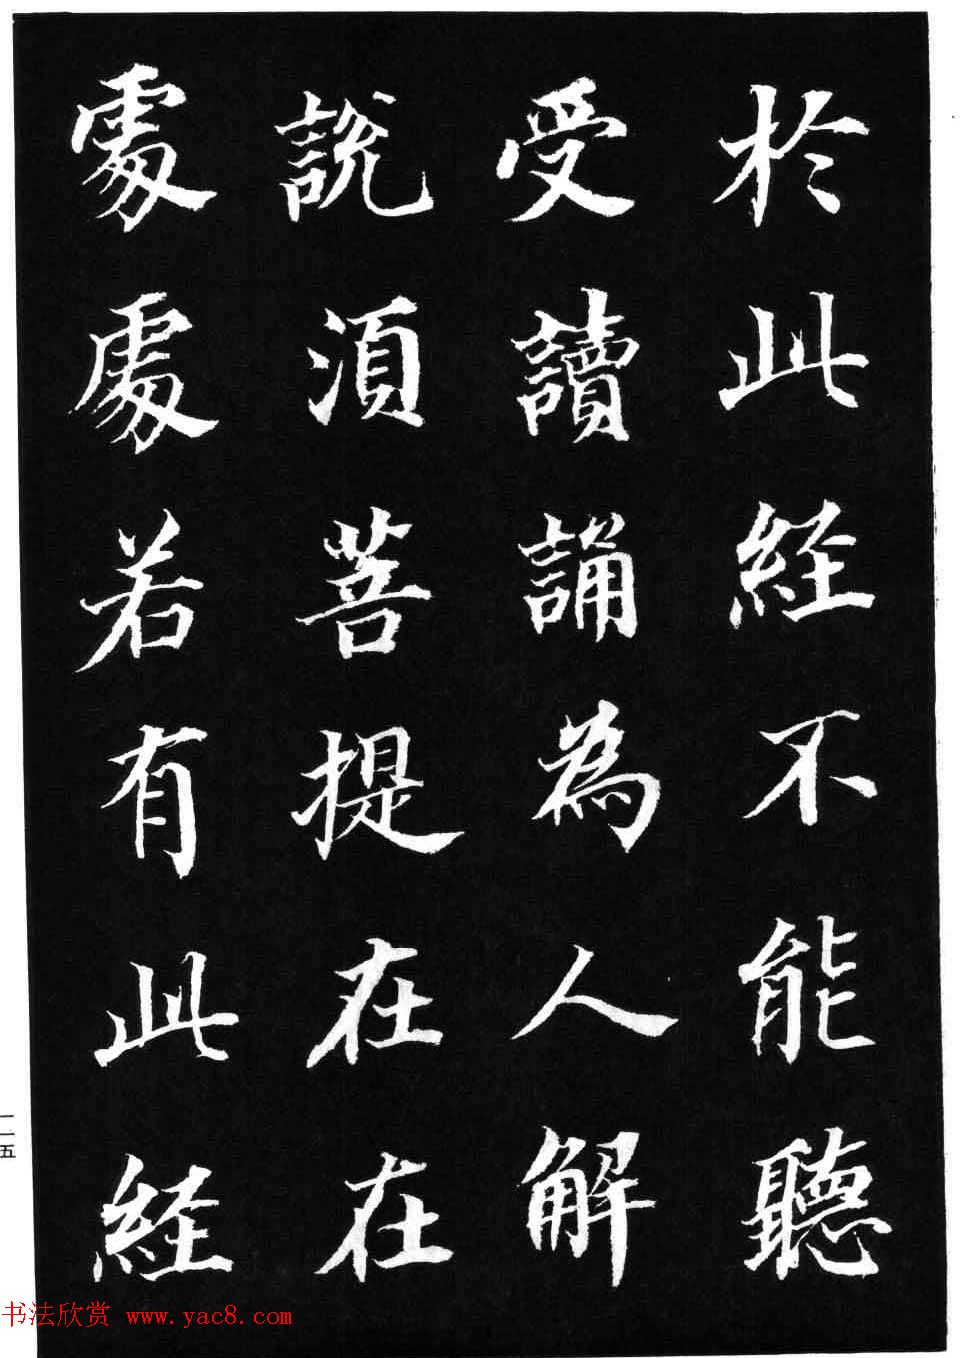 於此經不能聽
受讀誦為人解
說須菩提在在
處處若有此經
一一五
书法欣赏 www.yac8.com